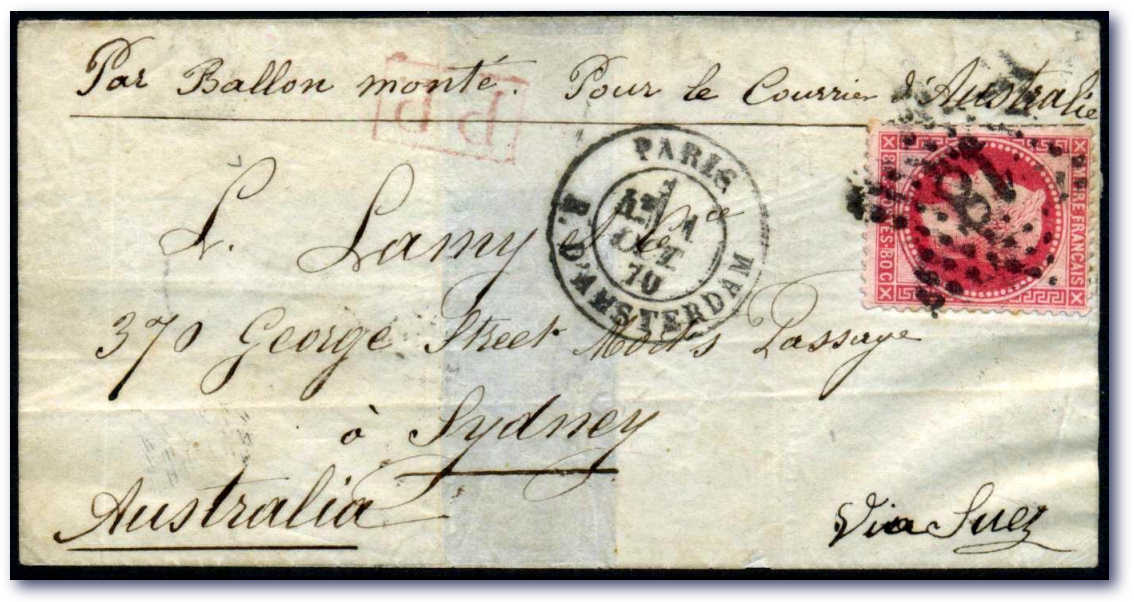 Par Ballon monté. Pour le Courrier d'Australie
P P
PARIS
1
OCT
70
R. D'AMSTERDAM
TIMBRE FRANÇAIS
80
L. Lamy
370 George Street Mort's Passage
à Sydney
Australia
Via Suez